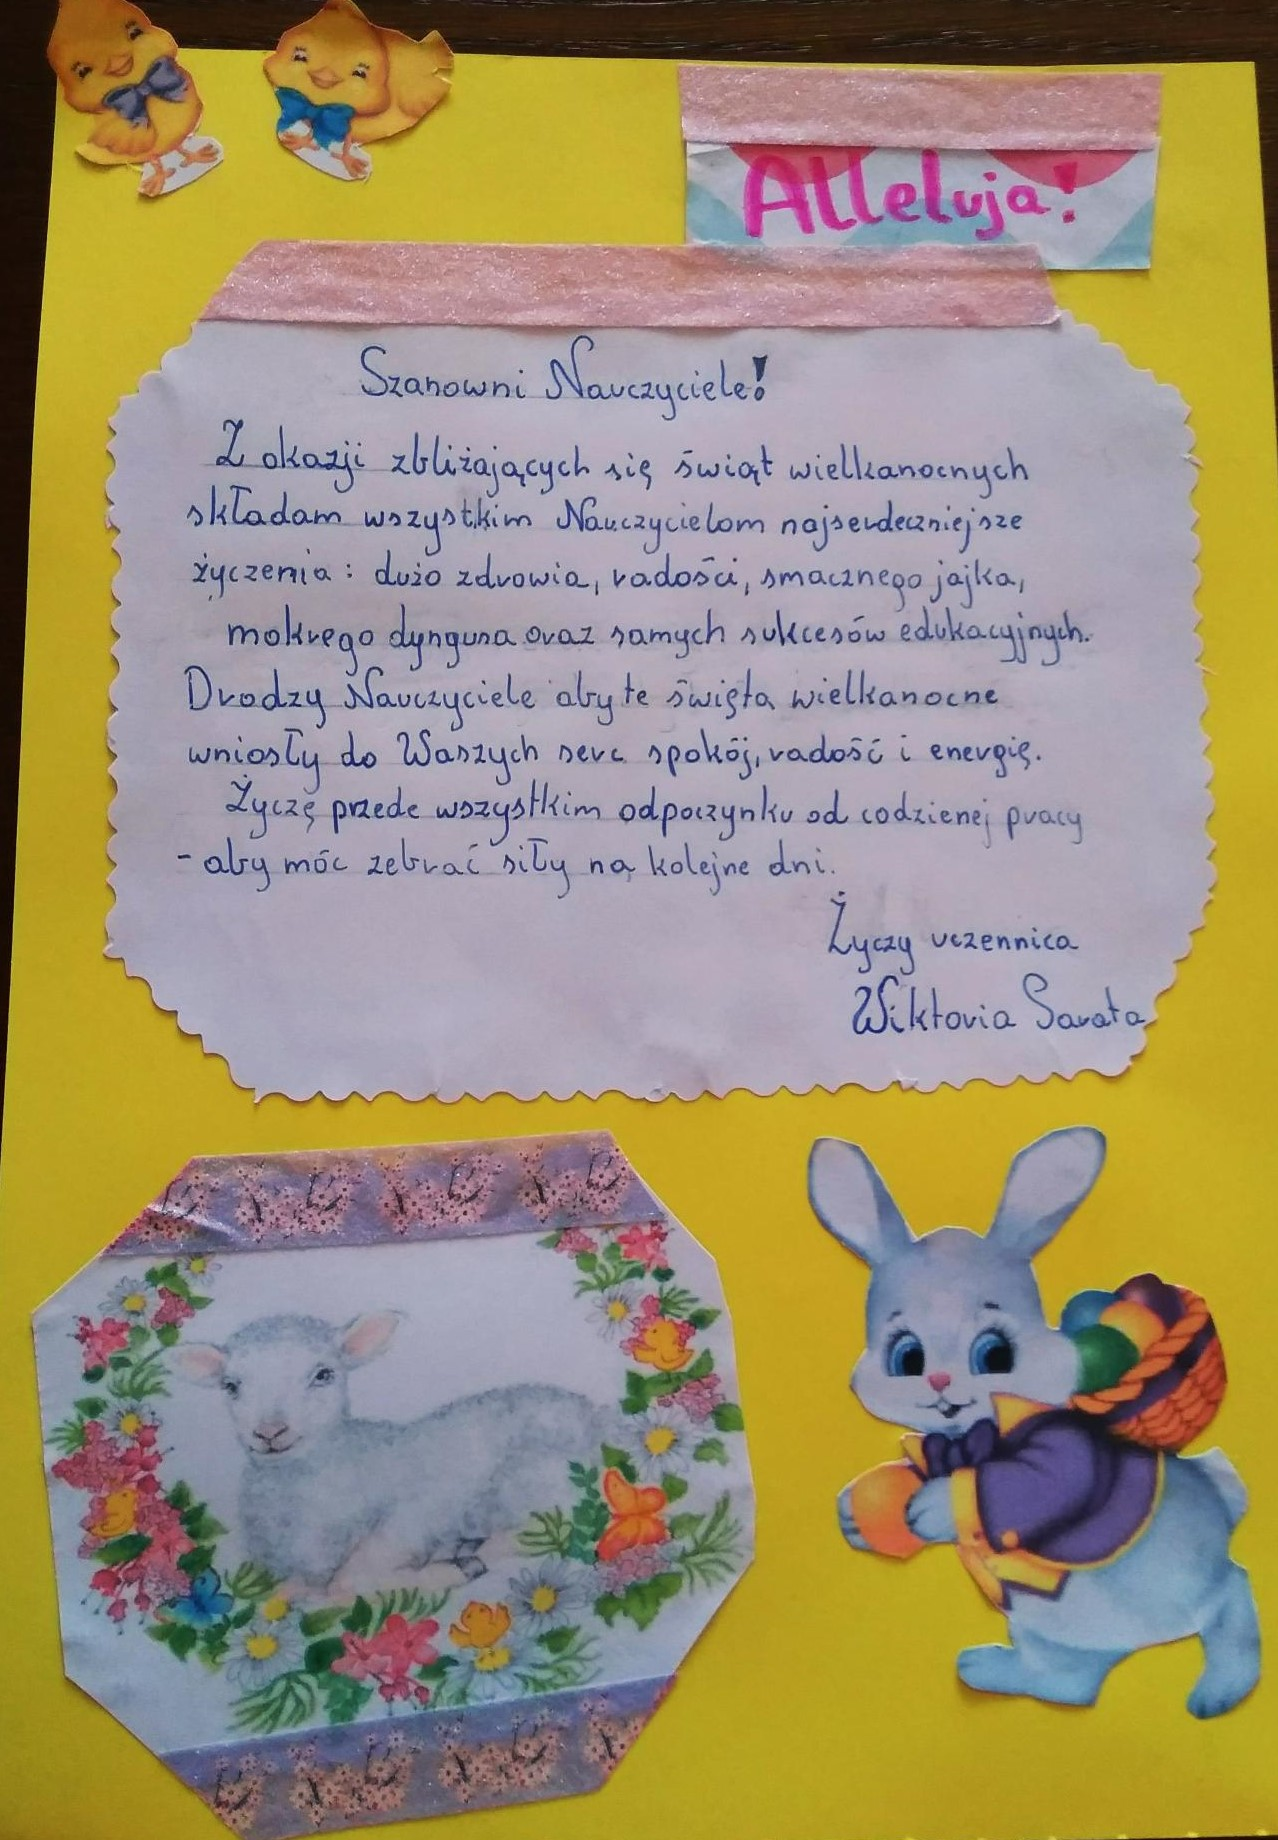 Alleluja!
Szanowni Nauczyciele!
Z okazji zbliżających się świąt wielkanocnych
składam wszystkim Nauczycielom najserdeczniejsze
życzenia: dużo zdrowia, radości, smacznego jajka,
mokrego dyngusa oraz samych sukcesów edukacyjnych.
Drodzy Nauczyciele aby te święta wielkanocne
wniosły do Waszych serc spokój, radość i energię.
Życzę przede wszystkim odpoczynku od codzienej pracy
- aby móc zebrać siły na kolejne dni.
Życzy uczennica
Wiktoria Sarata